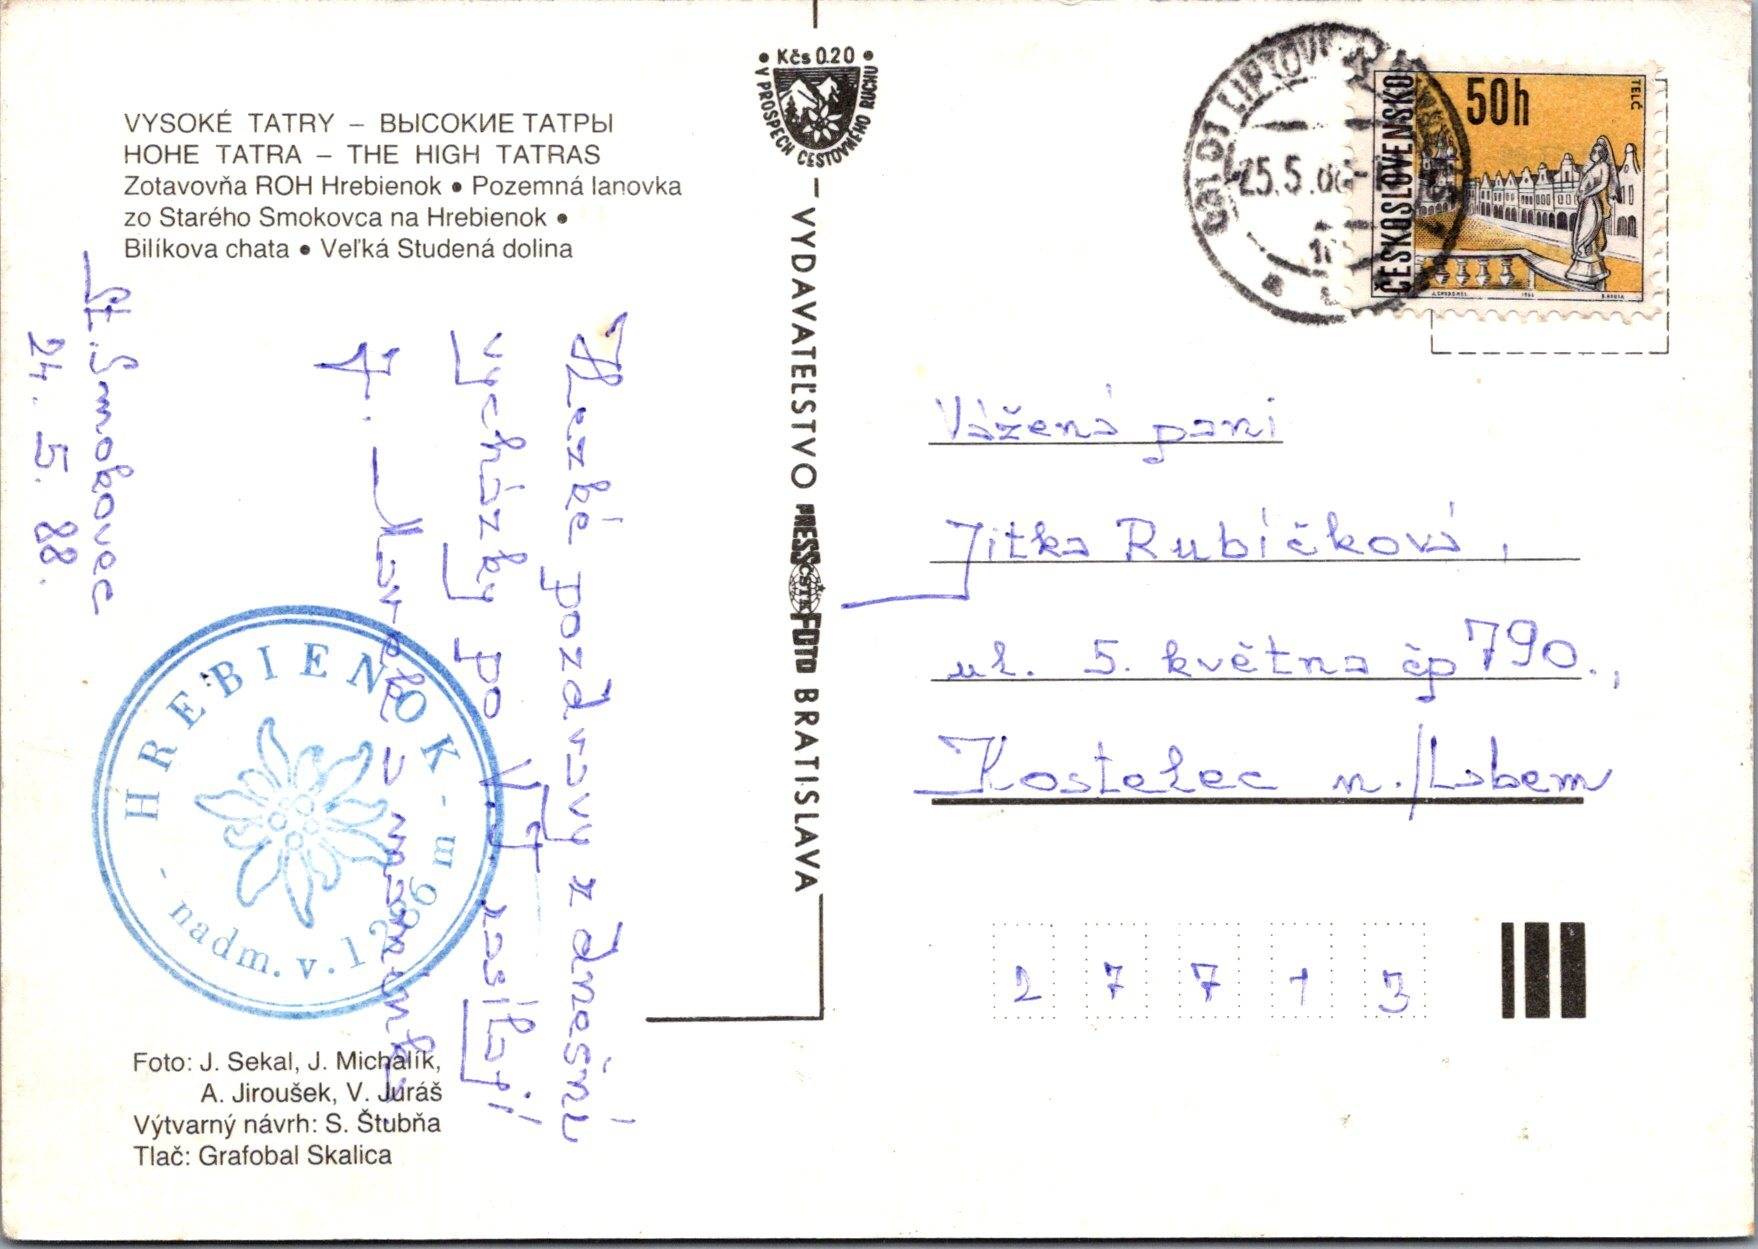 VYSOKÉ TATRY – ВЫСОКИЕ ТАТРЫ
HOHE TATRA – THE HIGH TATRAS
Zotavovňa ROH Hrebienok • Pozemná lanovka
zo Starého Smokovca na Hrebienok •
Bilíkova chata • Veľká Studená dolina
St. Smokovec
24. 5. 88.
Hezké pozdravy z dnešní
vycházky po V.T. zasílají
J. a maminka
HREBIENOK
- nadm. v. 1286 m -
Foto: J. Sekal, J. Michalík,
A. Jiroušek, V. Juráš
Výtvarný návrh: S. Štubňa
Tlač: Grafobal Skalica
• Kčs 0.20 •
V PROSPECH CESTOVNÉHO RUCHU
VYDAVATEĽSTVO PRESSFOTO BRATISLAVA
ČSTK
25.5.
ČESKOSLOVENSKO
50h
TELČ
Vážená paní
Jitka Rubíčková,
ul. 5. května čp 790.,
Kostelec n./Labem
2 7 7 1 3